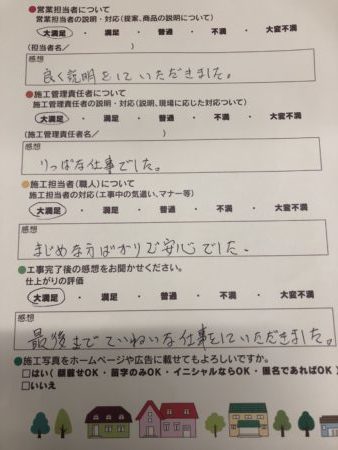 ●営業担当者について
営業担当者の説明・対応(提案、商品の説明について)
大満足 ・ 満足 ・ 普通 ・ 不満 ・ 大変不満
(担当者名/ )
感想
良く説明をしていただきました。
●施工管理責任者について
施工管理責任者の説明・対応(説明、現場に応じた対応ついて)
大満足 ・ 満足 ・ 普通 ・ 不満 ・ 大変不満
(施工管理責任者名/ )
感想
りっぱな仕事でした。
●施工担当者(職人)について
施工担当者の対応(工事中の気遣い、マナー等)
大満足 ・ 満足 ・ 普通 ・ 不満 ・ 大変不満
感想
まじめな方ばかりで安心でした。
●工事完了後の感想をお聞かせください。
仕上がりの評価
大満足 ・ 満足 ・ 普通 ・ 不満 ・ 大変不満
感想
最後までていねいな仕事をしていただきました。
●施工写真をホームページや広告に載せてもよろしいですか。
□はい( 顔載せOK ・ 苗字のみOK ・ イニシャルならOK ・ 匿名であればOK )
□いいえ